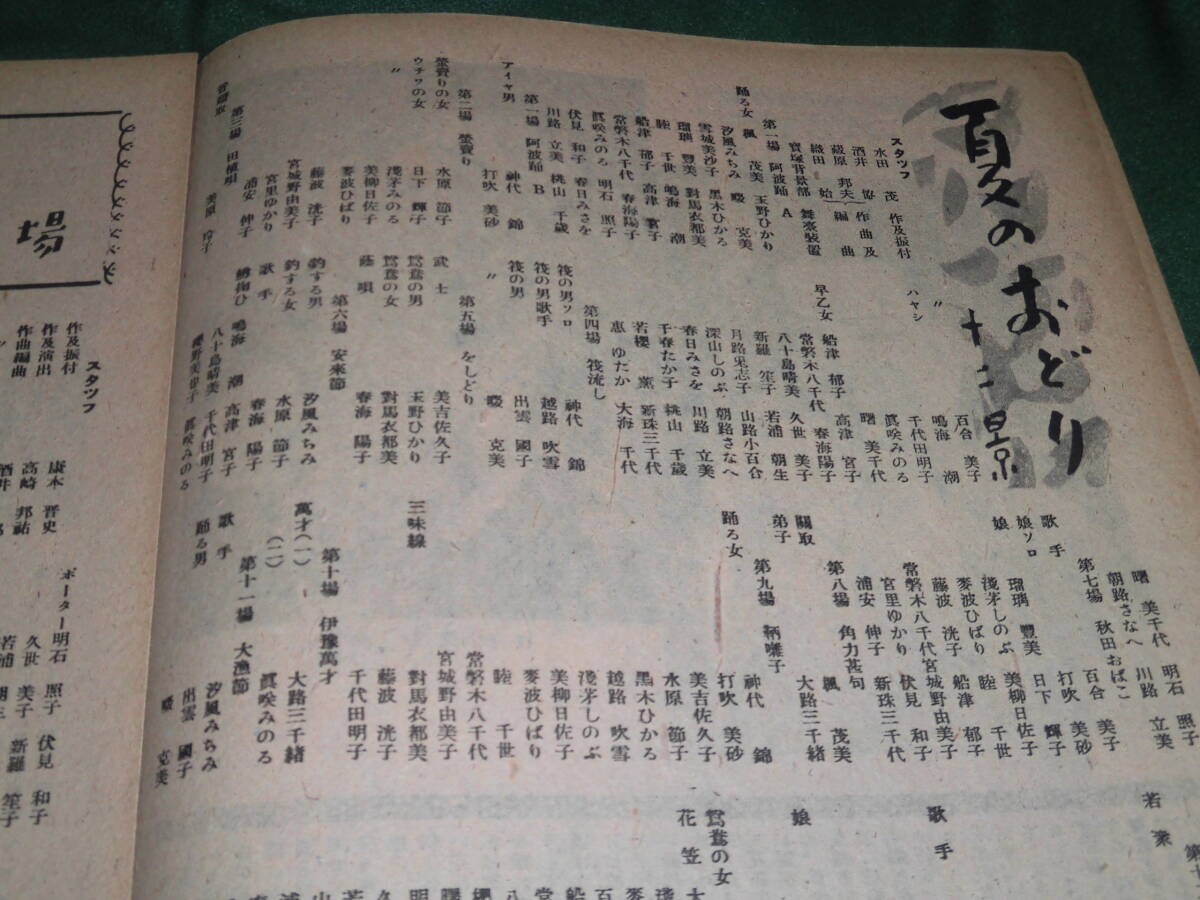 夏のおどり
十二景
スタツフ
水田 茂 作及振付
酒井 協 作曲及
蔵原 邦夫 編曲
織田 始
寶塚背景部 舞臺装置
第一場 阿波踊 A
踊る女
楓 茂美 玉野ひかり
汐風みちみ 畷 克美
雪城美沙子 黒木ひかる
瑠璃 豐美 對馬衣都美
睦 千世 鳴海 潮
船津 郁子 高津 宮子
常磐木八千代 春海陽子
眞咲みのる 明石 照子
伏見 和子 春日みさを
川路 立美 桃山 千歳
第一場 阿波踊 B
アイヤ男
神代 錦
打吹 美砂
第二場 螢賣り
螢賣りの女 水原 節子
ウチワの女 日下 輝子
〃 淺茅みのる
美柳日佐子
麥波ひばり
藤波 洸子
宮城野由美子
宮里ゆかり
浦安 伸子
第三場 田植唄
音頭取 美原 玲子
ハヤシ
百合 美子
鳴海 潮
〃
千代田明子
眞咲みのる
曙 美千代
高津 宮子
早乙女
船津 郁子 春海陽子
常磐木八千代
八十島晴美 久世 美子
新羅 笙子 若浦 朝生
月路兎志子 山路小百合
深山しのぶ 朝路さなへ
春日みさを 川路 立美
千春たか子 桃山 千歳
若櫻 薫 新珠三千代
恵 ゆたか 大海 千代
第四場 筏流し
筏の男ソロ 神代 錦
筏の男歌手 越路 吹雪
筏の男 出雲 國子
〃 畷 克美
第五場 をしどり
武士 美吉佐久子
鴛鴦の男 玉野ひかり
鴛鴦の女 對馬衣都美
蔭唄 春海 陽子
第六場 安來節
釣する男 汐風みちみ
釣する女 水原 節子
歌手 春海 陽子
鰌掬ひ 鳴海 潮 高津 宮子
八十島晴美 千代田明子
櫻野美也子 眞咲みのる
曙 美千代 明石 照子
朝路さなへ 川路 立美
第七場 秋田おばこ
歌手 百合 美子
打吹 美砂
娘ソロ 日下 輝子
娘
瑠璃 豐美 美柳日佐子
淺茅しのぶ 睦 千世
麥波ひばり 船津 郁子
藤波 洸子 宮城野由美子
常磐木八千代 伏見 和子
宮里ゆかり 新珠三千代
浦安 伸子
第八場 角力甚句
關取 楓 茂美
弟子 大路三千緒
第九場 鞆囃子
踊る女
神代 錦
打吹 美砂
美吉佐久子
水原 節子
黒木ひかる
越路 吹雪
淺茅しのぶ
美柳日佐子
麥波ひばり
睦 千世
常磐木八千代
宮城野由美子
三味線 對馬衣都美
藤波 洸子
千代田明子
第十場 伊豫萬才
萬才(一) 大路三千緒
(二) 眞咲みのる
第十一場 大漁節
歌手 汐風みちみ
踊る男 出雲 國子
畷 克美
第十
若衆
歌手
娘
鴛鴦の女
花笠
場
スタツフ
作及振付 康本 晋史
作及演出 高崎 邦祐
作曲編曲 酒井
〃
ポーター 明石 照子 伏見 和子
久世 美子 新羅 笙子
若浦 朝生